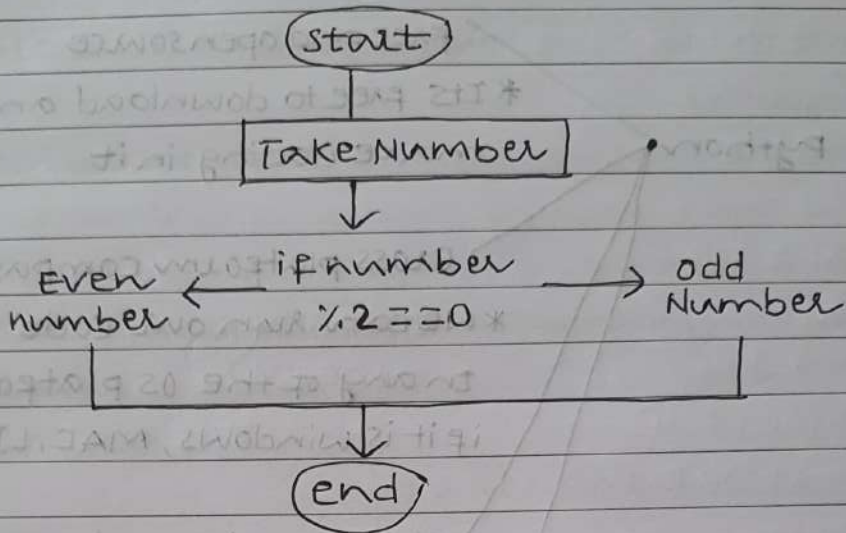 start
Take Number
Even if number odd
number %2==0 Number
end